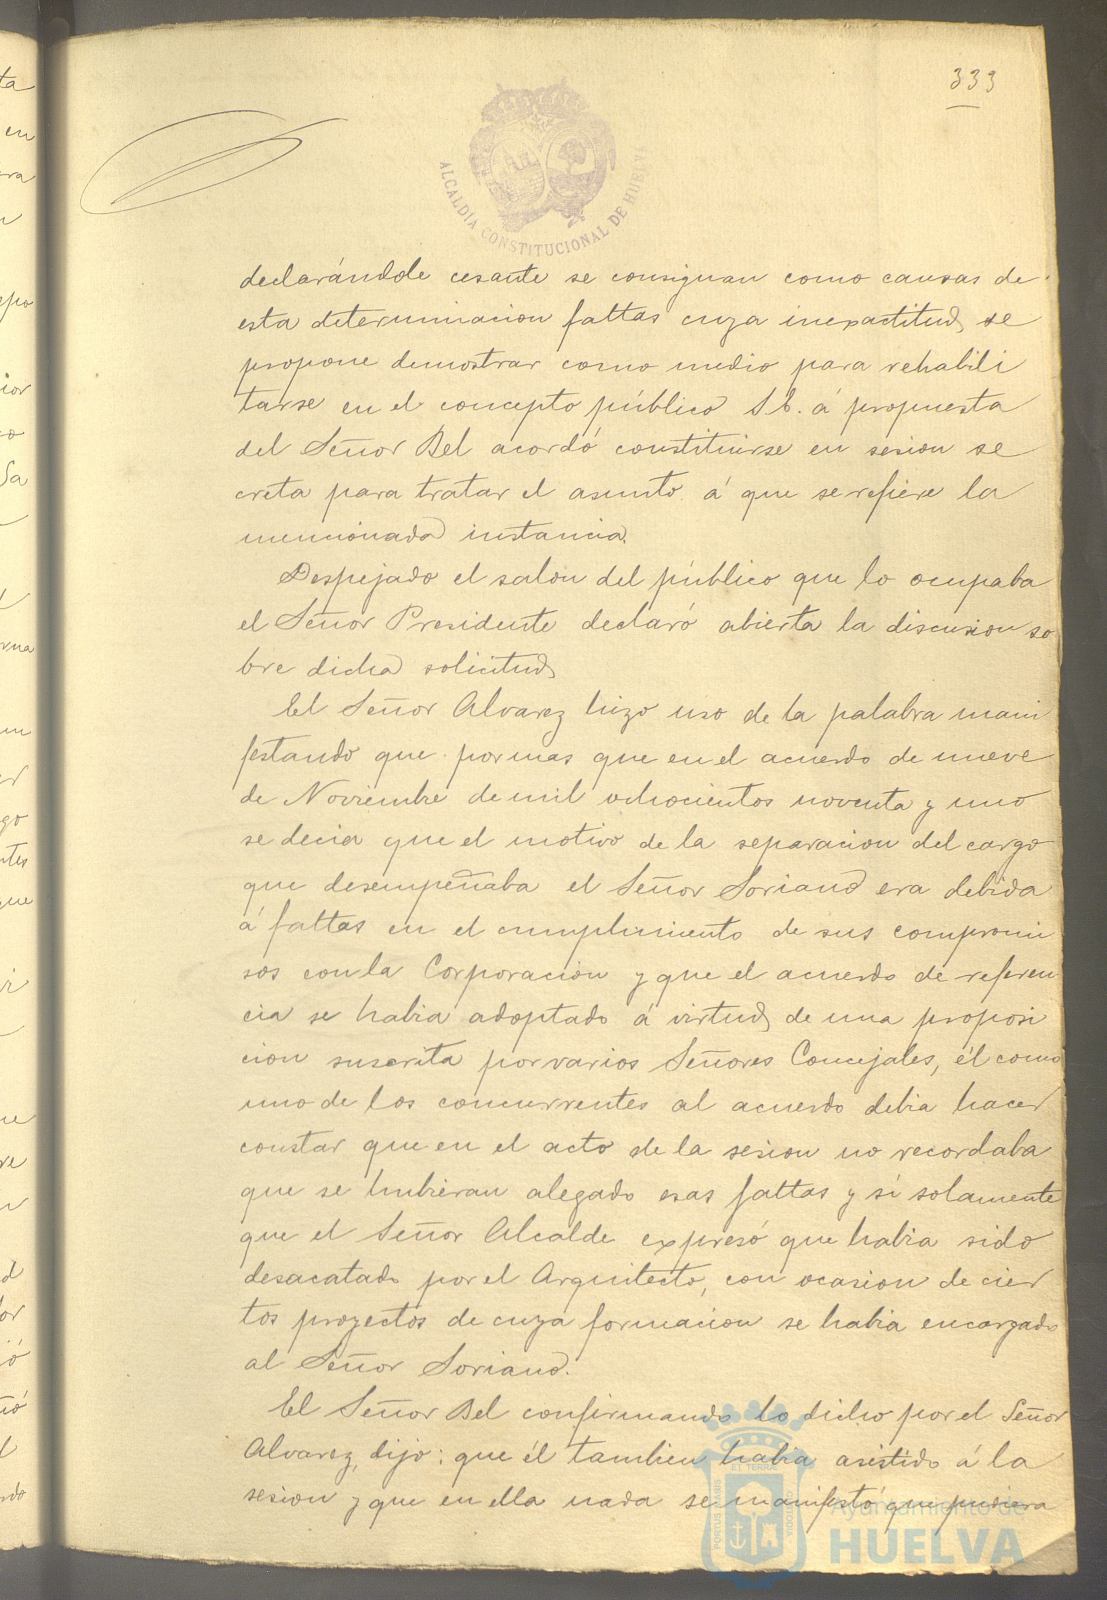 333
ALCALDIA CONSTITUCIONAL DE HUELVA
declarándole cesante se consignan como causas de
esta determinacion faltas cuya inexactitud se
propone demostrar como medio para rehabili
tarse en el concepto público S. E. á propuesta
del Señor Bel acordó constituirse en sesion se
creta para tratar el asunto á que se refiere la
mencionada instancia.
Despejado el salon del público que lo ocupaba
el Señor Presidente declaró abierta la discusion so
bre dicha solicitud
El Señor Alvarez hizo uso de la palabra mani
festando que por mas que en el acuerdo de nueve
de Noviembre de mil ochocientos noventa y uno
se decia que el motivo de la separacion del cargo
que desempeñaba el Señor Soriano era debida
á faltas en el cumplimiento de sus compromi
sos con la Corporacion y que el acuerdo de referen
cia se habia adoptado á virtud de una proposi
cion suscrita por varios Señores Concejales, él como
uno de los concurrentes al acuerdo debia hacer
constar que en el acto de la sesion no recordaba
que se hubieran alegado esas faltas y sí solamente
que el Señor Alcalde expresó que habia sido
desacatado por el Arquitecto, con ocasion de cier
tos proyectos de cuya formacion se habia encargado
al Señor Soriano.
El Señor Bel confirmando lo dicho por el Señor
Alvarez, dijo: que él tambien habia asistido á la
sesion y que en ella nada se manifestó que pudiera
PORTUS MARIS ET TERRAE CUSTODIA
Ayuntamiento de
HUELVA